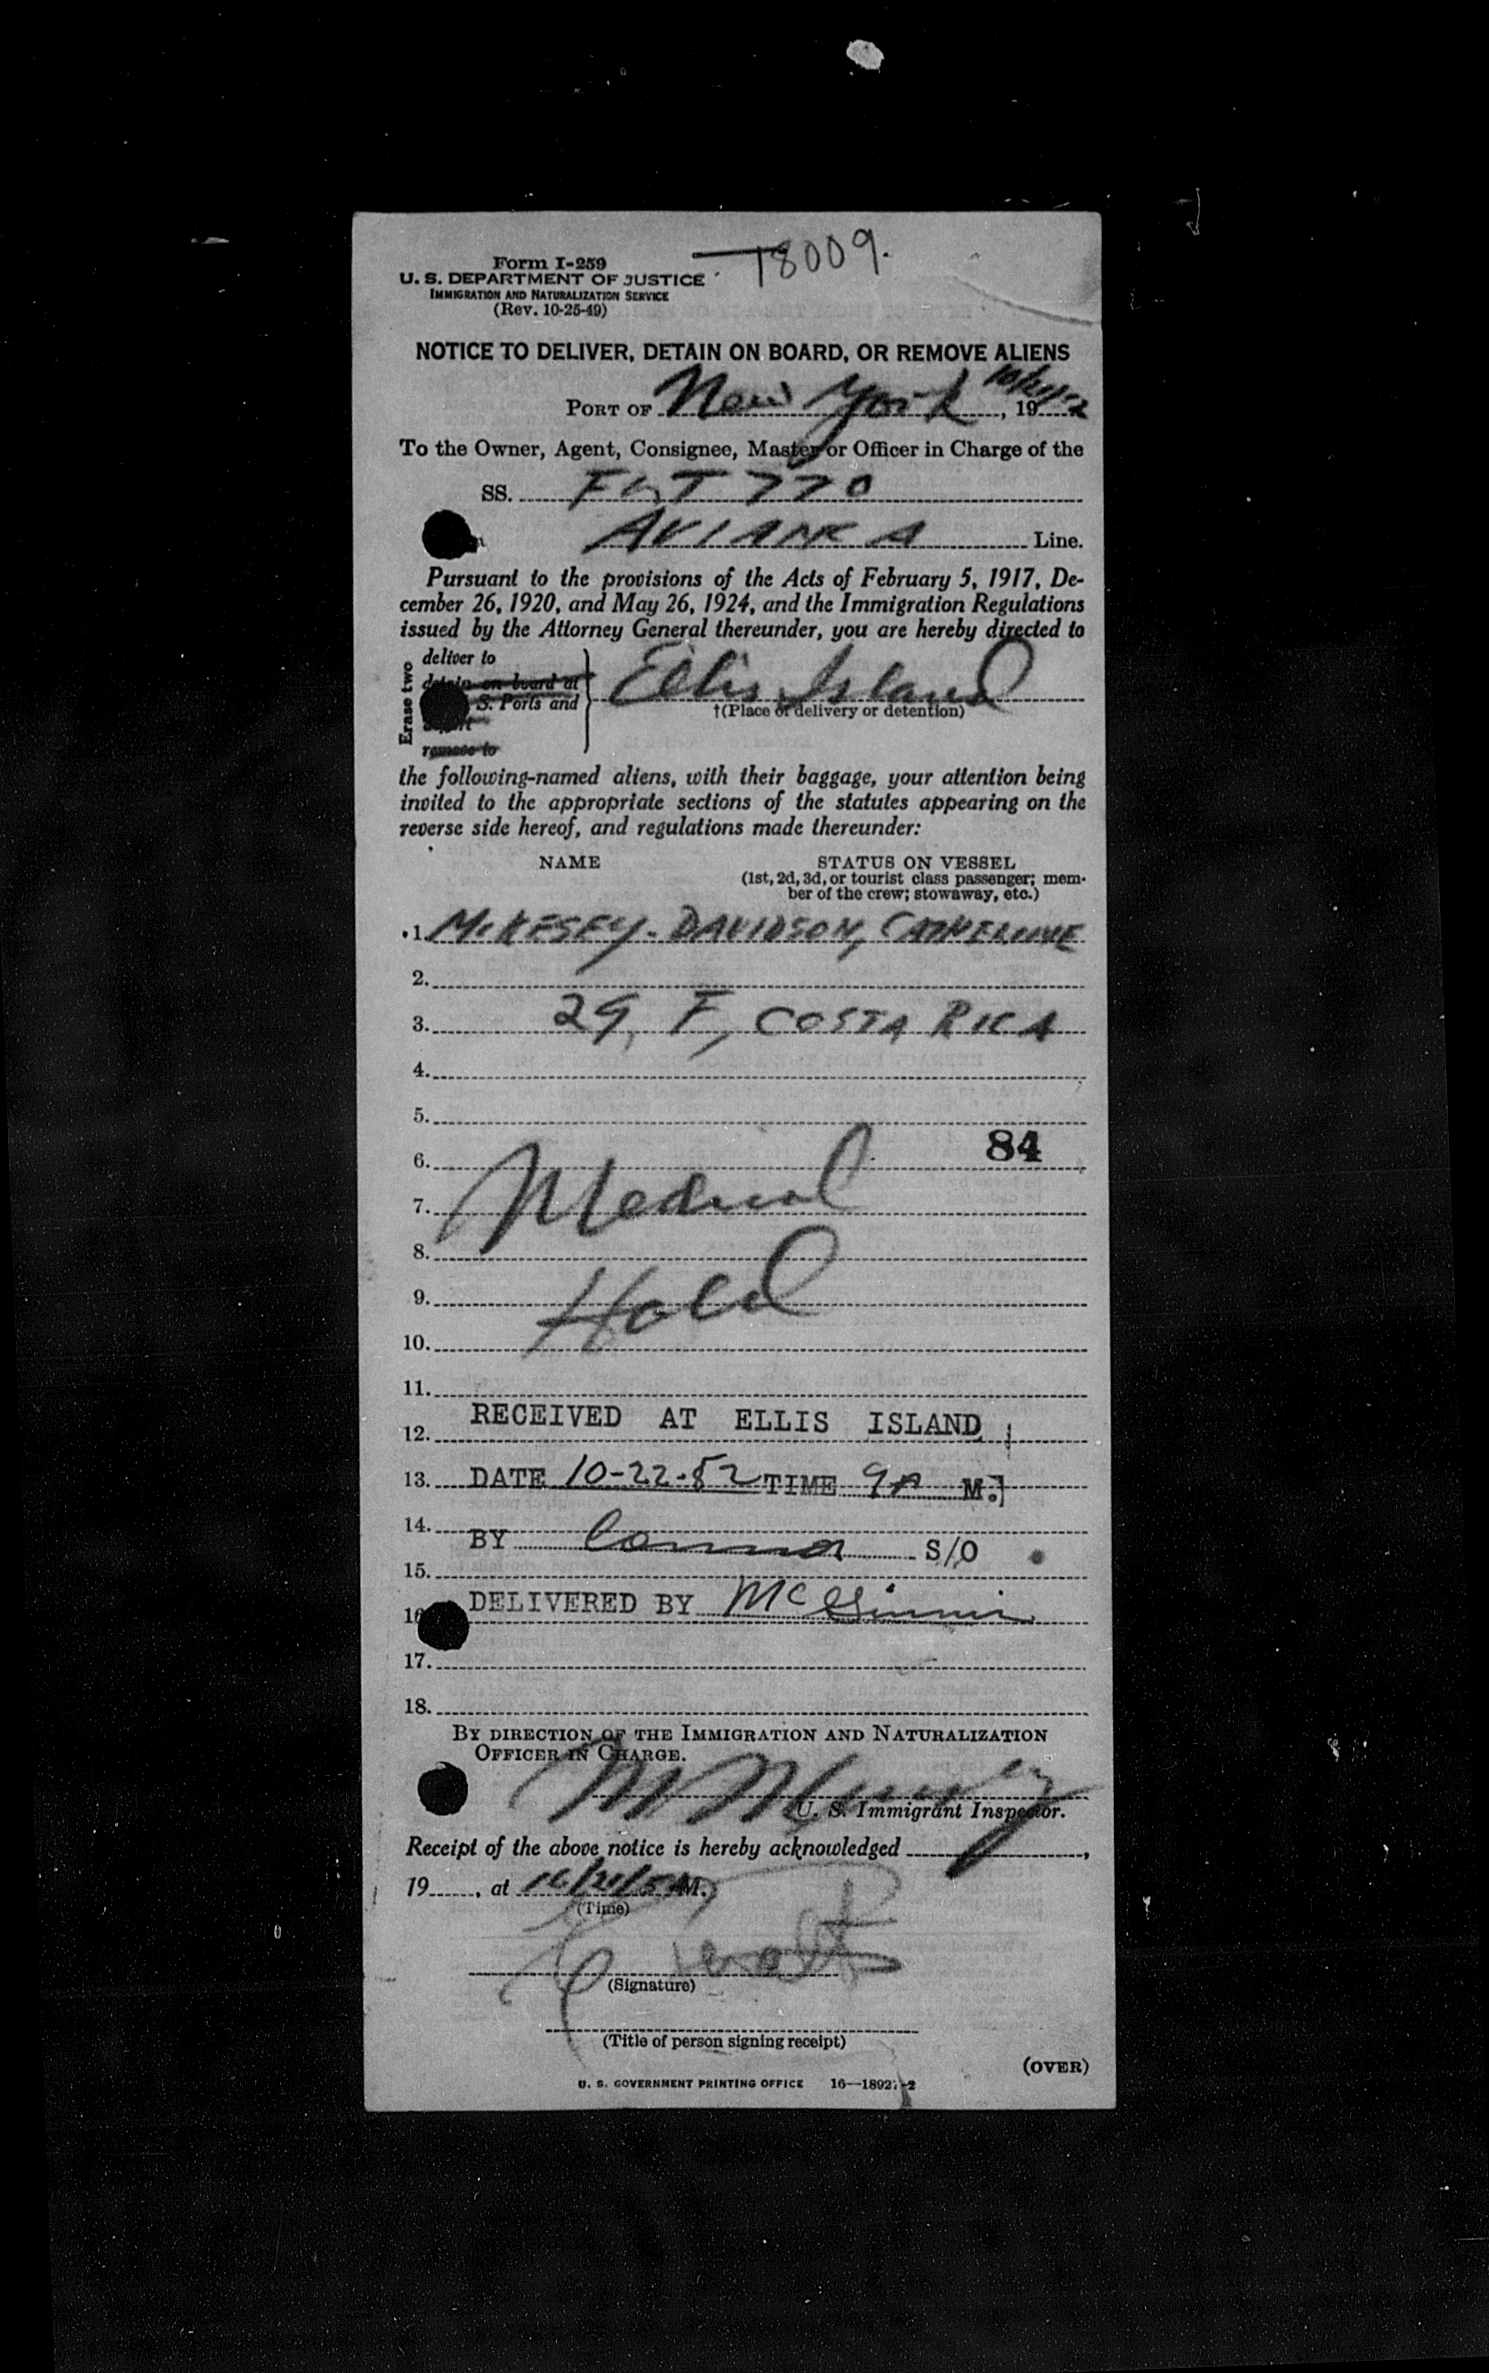 T8009.
Form I-259
U. S. DEPARTMENT OF JUSTICE
IMMIGRATION AND NATURALIZATION SERVICE
(Rev. 10-25-49)
NOTICE TO DELIVER, DETAIN ON BOARD, OR REMOVE ALIENS
PORT OF New York 10/21/52, 19
To the Owner, Agent, Consignee, Master or Officer in Charge of the
SS. FLT 770
AVIANCA Line.
Pursuant to the provisions of the Acts of February 5, 1917, De-
cember 26, 1920, and May 26, 1924, and the Immigration Regulations
issued by the Attorney General thereunder, you are hereby directed to
Erase two
deliver to
detain on board at
S. Ports and
remove to
Ellis Island
†(Place of delivery or detention)
the following-named aliens, with their baggage, your attention being
invited to the appropriate sections of the statutes appearing on the
reverse side hereof, and regulations made thereunder:
NAME STATUS ON VESSEL
(1st, 2d, 3d, or tourist class passenger; mem-
ber of the crew; stowaway, etc.)
1. McKESEY-DAVIDSON, CATHERINE
2.
3. 29, F, COSTA RICA
4.
5.
84
6.
7. Medical
8.
9. Hold
10.
11.
RECEIVED AT ELLIS ISLAND
12.
13. DATE 10-22-52 TIME 9A M.
14.
BY Connor S/O
15.
16 DELIVERED BY McGinnis
17.
18.
BY DIRECTION OF THE IMMIGRATION AND NATURALIZATION
OFFICER IN CHARGE.
U. S. Immigrant Inspector.
Receipt of the above notice is hereby acknowledged ,
19 , at 10/21/52 M.
(Time)
(Signature)
(Title of person signing receipt)
(OVER)
U. S. GOVERNMENT PRINTING OFFICE 16—18927-2